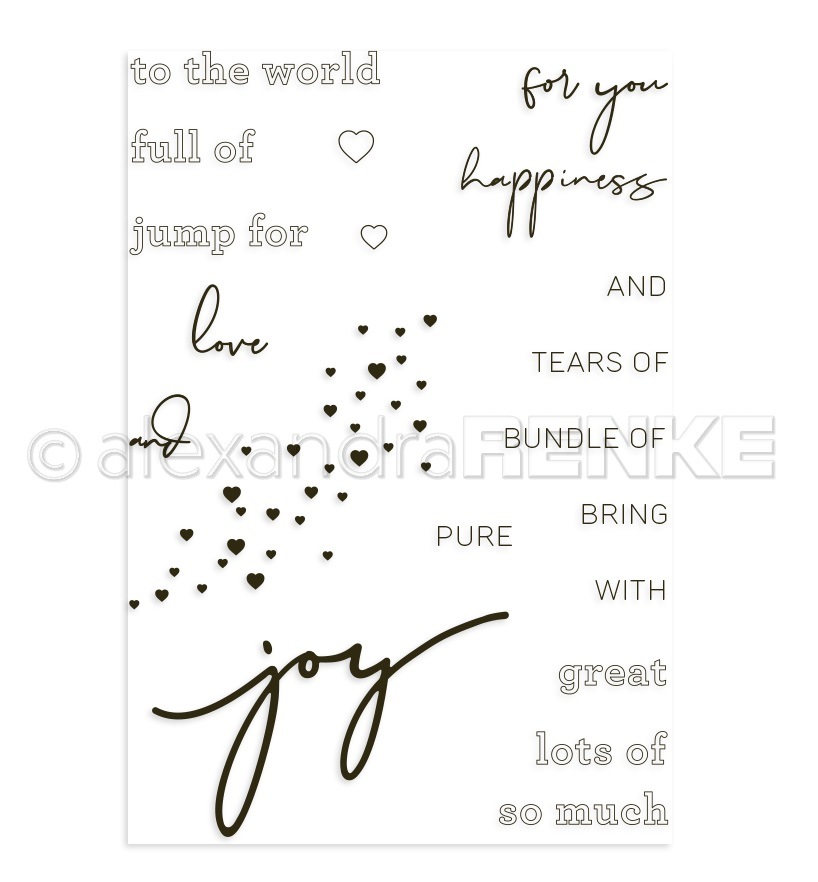 to the world
for you
full of
happiness
jump for
AND
love
TEARS OF
and
BUNDLE OF
© alexandraRENKE
BRING
PURE
WITH
joy
great
lots of
so much